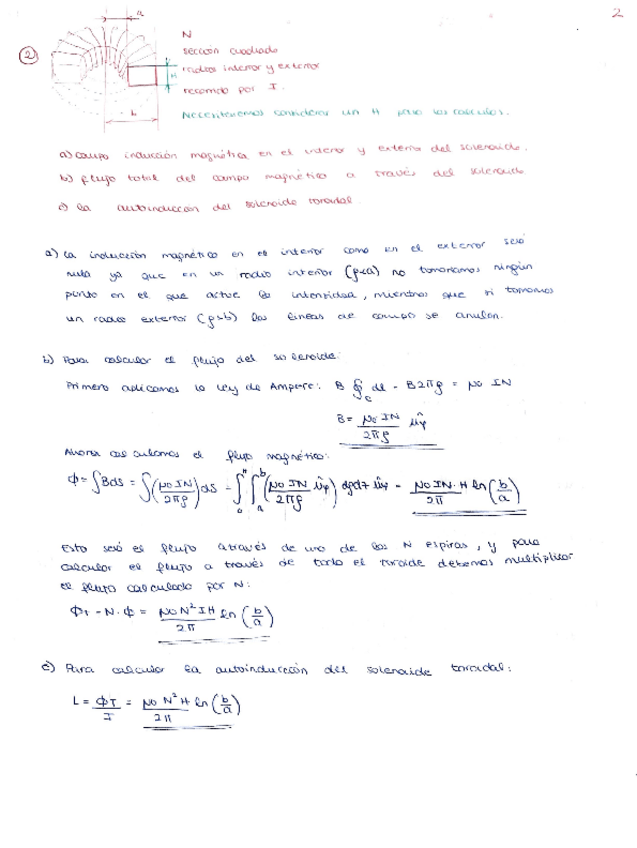 2
2
a
N
sección cuadrada
radios interior y exterior
H
recorrido por I.
b
Necesitaremos considerar un H para los cálculos.
a) campo inducción magnética en el interior y exterior del solenoide.
b) flujo total del campo magnético a través del solenoide
c) la autoinducción del solenoide toroidal
a) la inducción magnética en el interior como en el exterior será
nula ya que en un radio interior (ρ<a) no tomaríamos ningún
punto en el que actúe la intensidad, mientras que si tomamos
un radio exterior (ρ>b) las líneas de campo se anulan.
b) Para calcular el flujo del solenoide:
Primero aplicamos la ley de Ampere: B ∮c dl = B2πρ = μ0 IN
B = μ0 IN / 2πρ ûφ
Ahora calculamos el flujo magnético:
Φ = ∫BdS = ∫(μ0 IN / 2πρ) dS = ∫0^H ∫a^b (μ0 IN / 2πρ ûφ) dρdz ûφ = μ0 IN·H / 2π ln(b/a)
Esto será el flujo a través de una de las N espiras, y para
calcular el flujo a través de todo el toroide debemos multiplicar
el flujo calculado por N:
ΦT = N·Φ = μ0 N² I H / 2π ln(b/a)
c) Para calcular la autoinducción del solenoide toroidal:
L = ΦT / I = μ0 N² H / 2π ln(b/a)